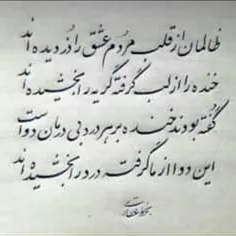 ظالمان از قلب مردم عشق را دزدیده اند
خنده را از لب گرفته گریه را بخشیده اند
گفته بودند خنده بر هر درد بی درمان دواست
این دوا از ما گرفته درد را بخشیده اند